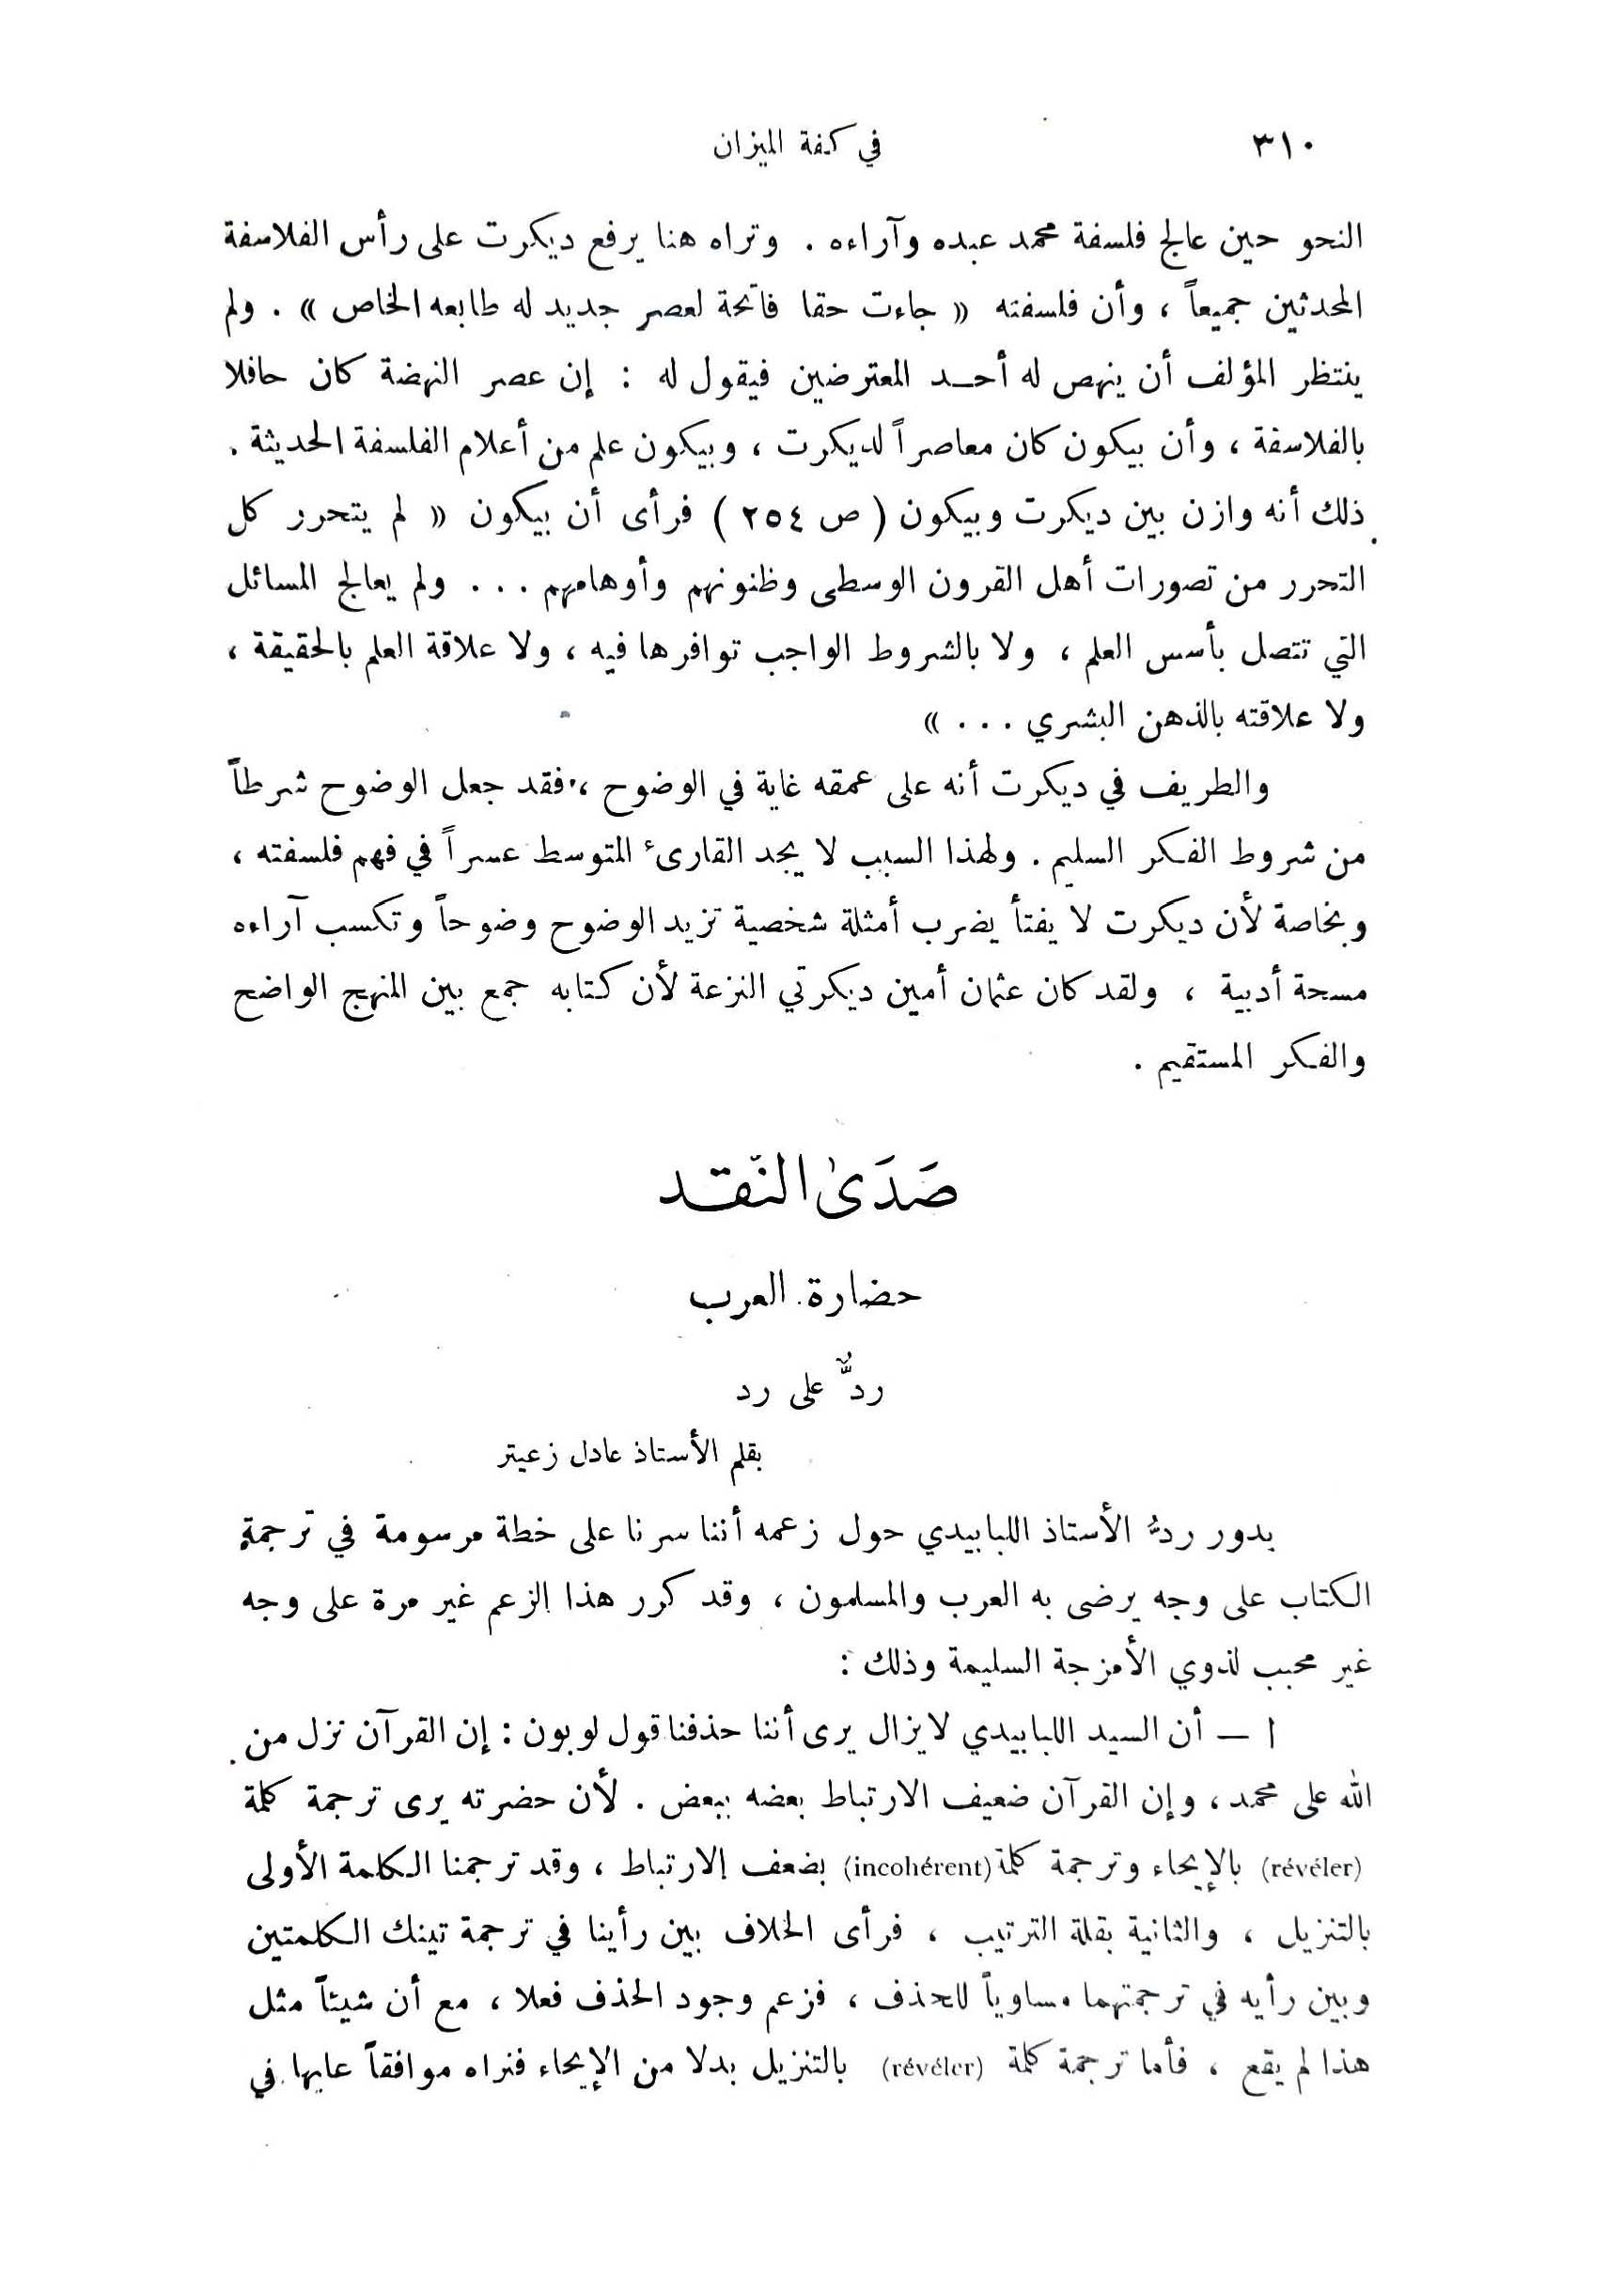 ٣١٠
في كفة الميزان
النحو حين عالج فلسفة محمد عبده وآراءه . وتراه هنا يرفع ديكرت على رأس الفلاسفة
المحدثين جميعاً ، وأن فلسفته « جاءت حقا فاتحة لعصر جديد له طابعه الخاص » . ولم
ينتظر المؤلف أن ينهص له أحد المعترضين فيقول له : إن عصر النهضة كان حافلا
بالفلاسفة ، وأن بيكون كان معاصراً لديكرت ، وبيكون علم من أعلام الفلسفة الحديثة .
ذلك أنه وازن بين ديكرت وبيكون ( ص ٢٥٤ ) فرأى أن بيكون « لم يتحرر كل
التحرر من تصورات أهل القرون الوسطى وظنونهم وأوهامهم ... ولم يعالج المسائل
التي تتصل بأسس العلم ، ولا بالشروط الواجب توافرها فيه ، ولا علاقة العلم بالحقيقة ،
ولا علاقته بالذهن البشري ... »
والطريف في ديكرت أنه على عمقه غاية في الوضوح ، فقد جعل الوضوح شرطاً
من شروط الفكر السليم . ولهذا السبب لا يجد القارىء المتوسط عسراً في فهم فلسفته ،
وبخاصة لأن ديكرت لا يفتأ يضرب أمثلة شخصية تزيد الوضوح وضوحاً وتكسب آراءه
مسحة أدبية ، ولقد كان عثمان أمين ديكرتي النزعة لأن كتابه جمع بين المنهج الواضح
والفكر المستقيم .
صَدَىٰ النّقد
حضارة العرب
ردٌّ على رد
بقلم الأستاذ عادل زعيتر
يدور ردُّ الأستاذ اللبابيدي حول زعمه أننا سرنا على خطة مرسومة في ترجمة
الكتاب على وجه يرضى به العرب والمسلمون ، وقد كرر هذا الزعم غير مرة على وجه
غير محبب لذوي الأمزجة السليمة وذلك :
ا — أن السيد اللبابيدي لا يزال يرى أننا حذفنا قول لوبون : إن القرآن نزل من
الله على محمد ، وإن القرآن ضعيف الارتباط بعضه ببعض . لأن حضرته يرى ترجمة كلمة
(révéler) بالإيحاء وترجمة كلمة (incohérent) بضعف الارتباط ، وقد ترجمنا الكلمة الأولى
بالتنزيل ، والثانية بقلة الترتيب ، فرأى الخلاف بين رأينا في ترجمة تينك الكلمتين
وبين رأيه في ترجمتهما مساوياً للحذف ، فزعم وجود الحذف فعلا ، مع أن شيئاً مثل
هذا لم يقع ، فأما ترجمة كلمة (révéler) بالتنزيل بدلا من الإيحاء فنراه موافقاً عليها في